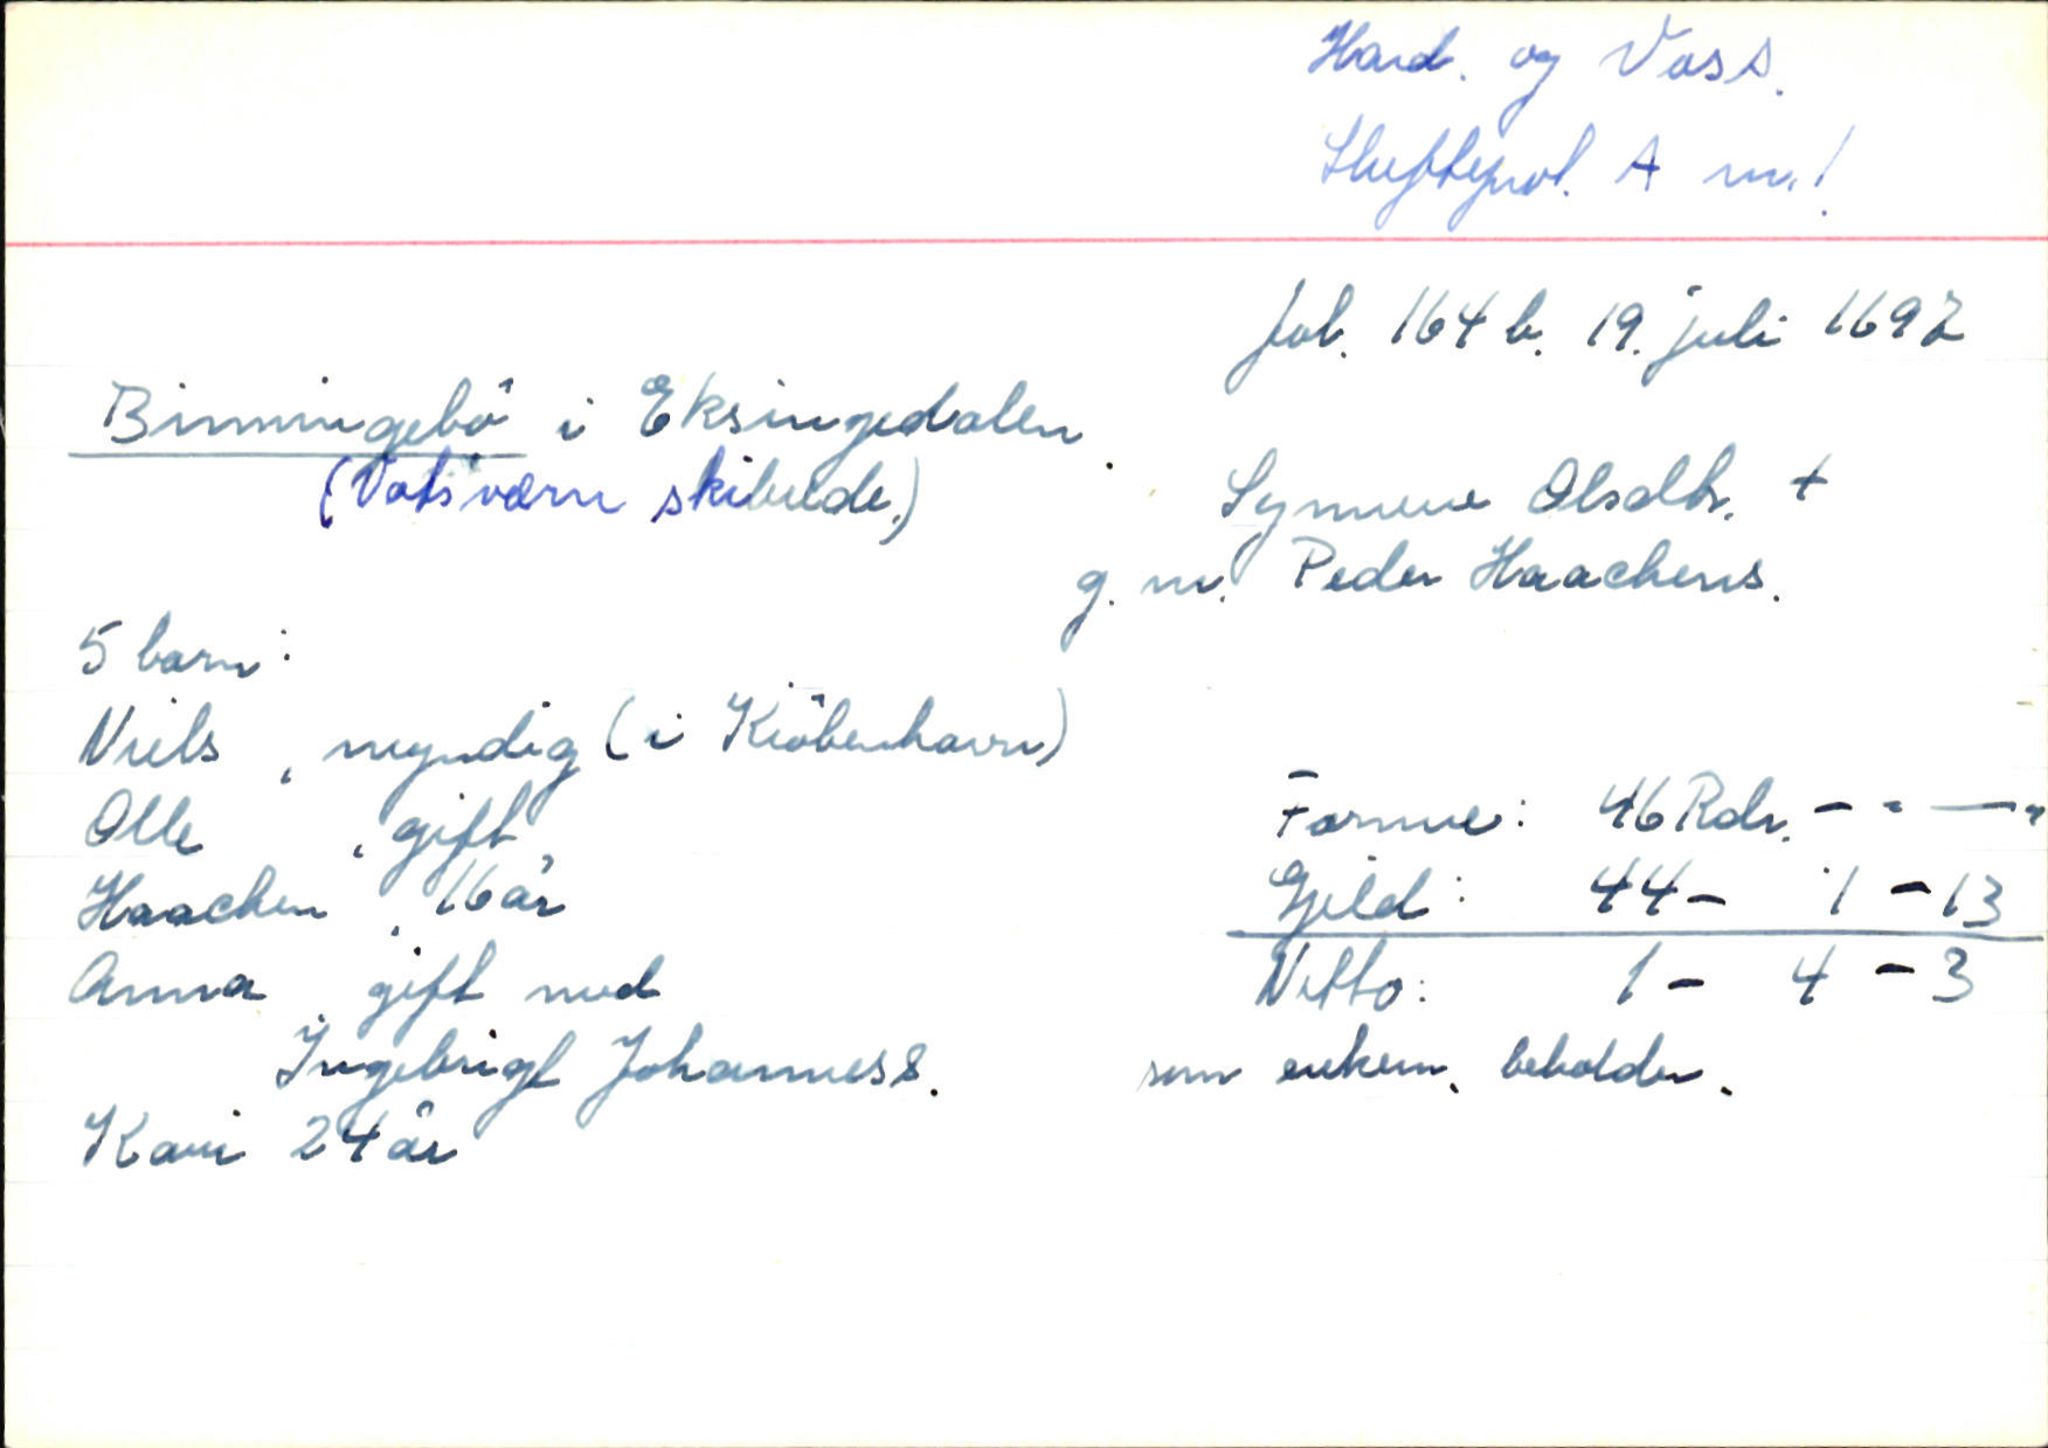 Hard. og Voss.
Skifteprot. A nr. 1
fol. 164 b. 19. juli 1697
Binningebö i Eksingedalen
(Vatsværn skibrede.)
Synnøve Olsdtr. +
g. m. Peder Haachens.
5 barn:
Niels, myndig (i Kiöbenhavn)
Olle, gift,
Haachen, 16 år
Anna gift med
Ingebrigt Johanness.
Kari 24 år
Formue: 46 Rdr. - " - "
Gjeld: 44 - 1 - 13
Netto: 1 - 4 - 3
som enkem. beholder.